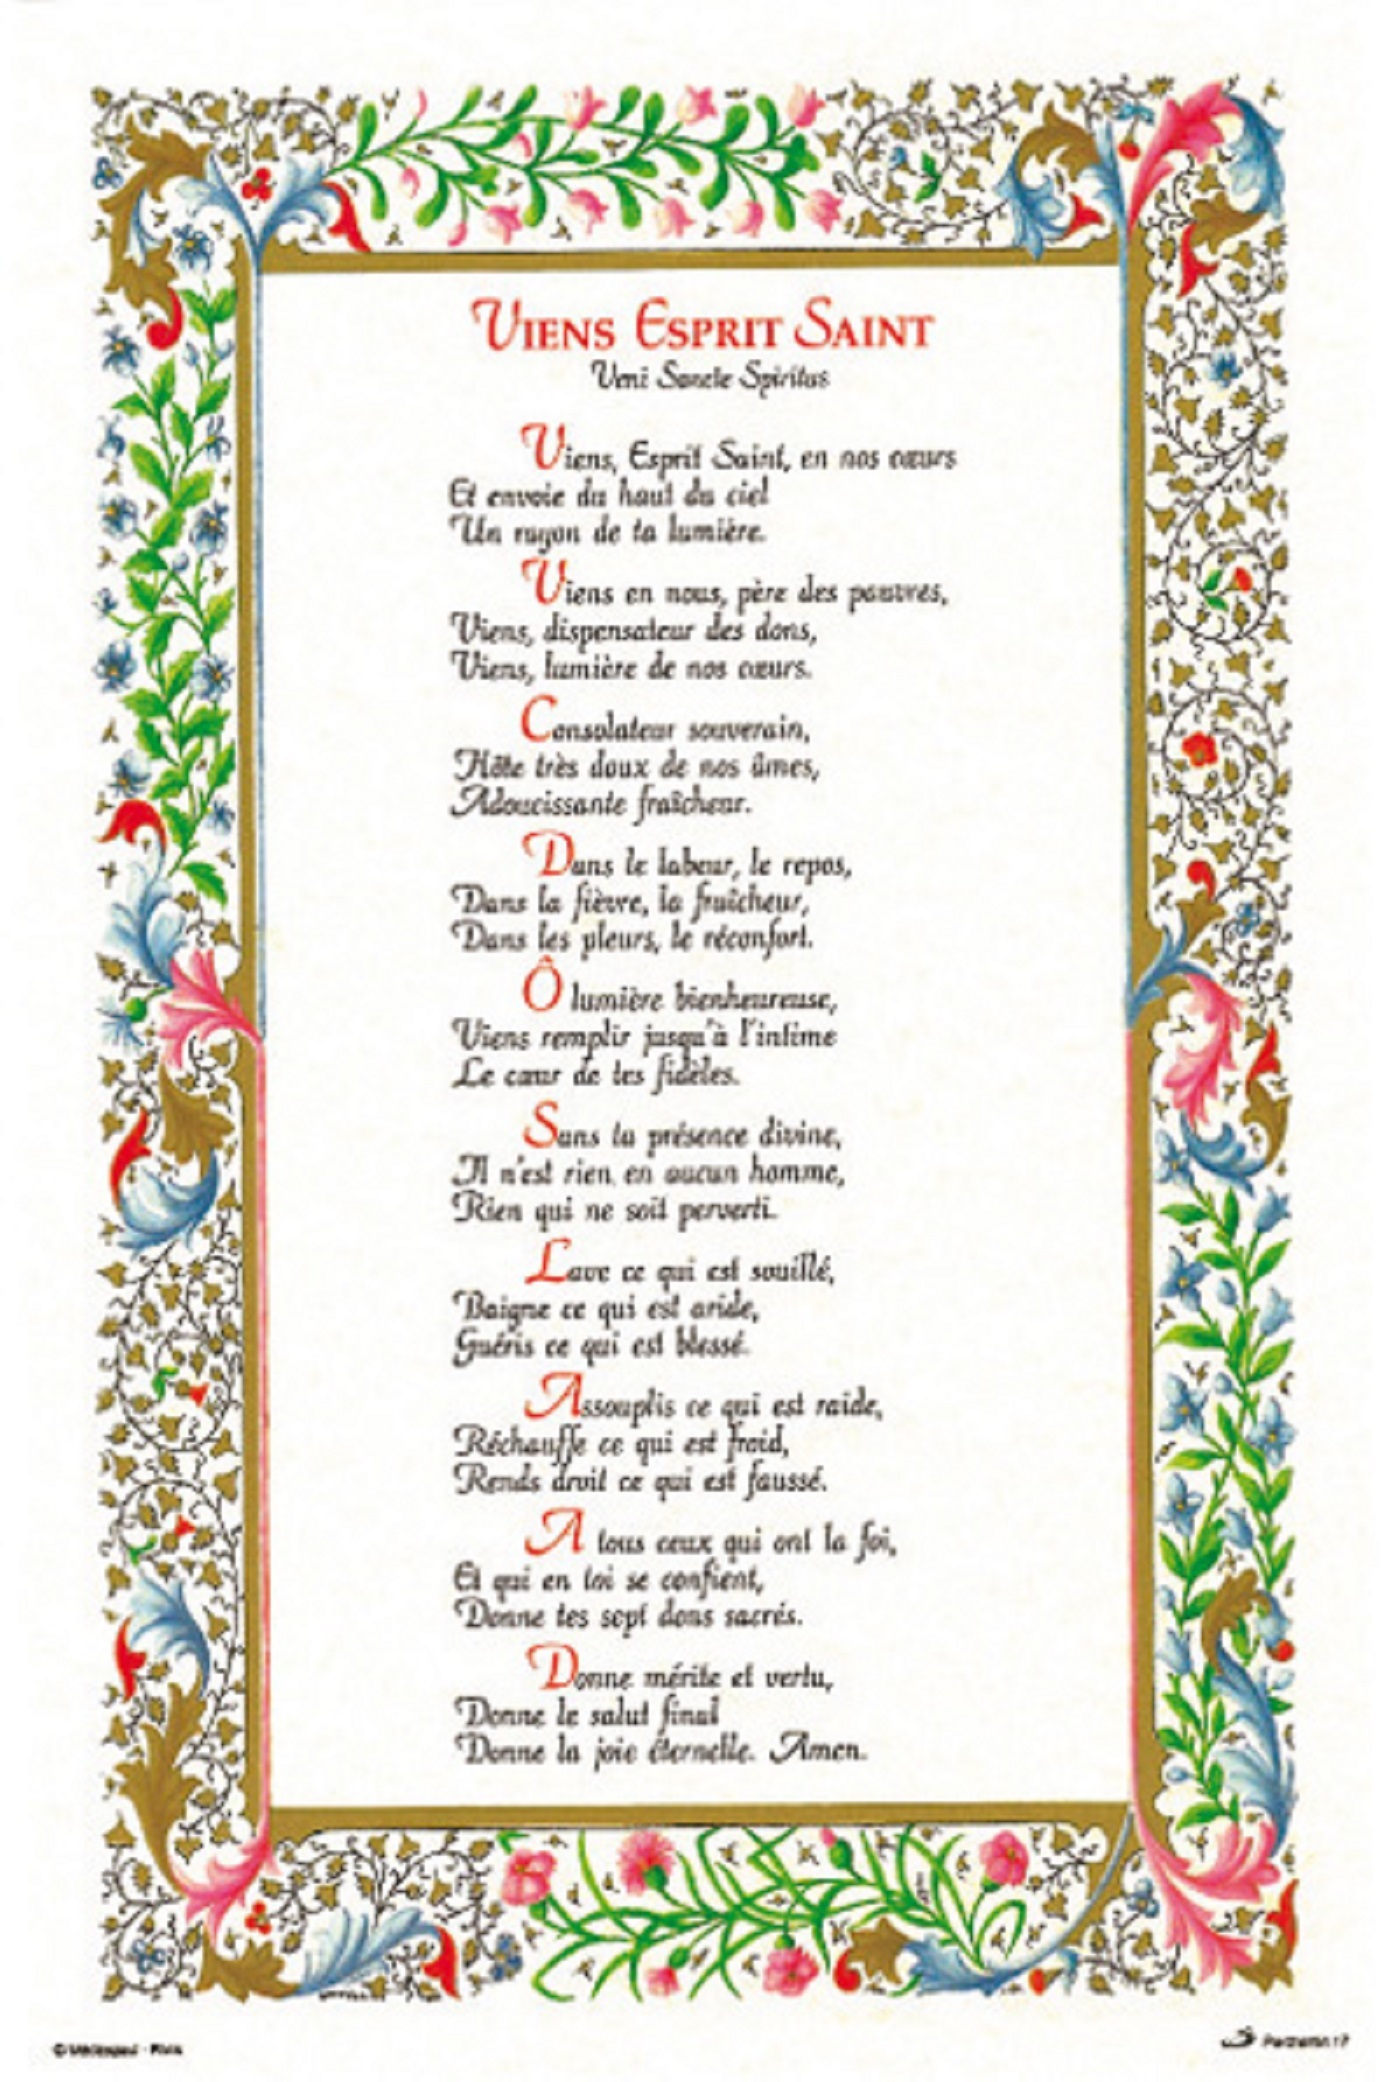 VIENS ESPRIT SAINT
Veni Sancte Spiritus
Viens, Esprit Saint, en nos cœurs
Et envoie du haut du ciel
Un rayon de ta lumière.
Viens en nous, père des pauvres,
Viens, dispensateur des dons,
Viens, lumière de nos cœurs.
Consolateur souverain,
Hôte très doux de nos âmes,
Adoucissante fraîcheur.
Dans le labeur, le repos,
Dans la fièvre, la fraîcheur,
Dans les pleurs, le réconfort.
Ô lumière bienheureuse,
Viens remplir jusqu'à l'intime
Le cœur de tes fidèles.
Sans ta présence divine,
Il n'est rien en aucun homme,
Rien qui ne soit perverti.
Lave ce qui est souillé,
Baigne ce qui est aride,
Guéris ce qui est blessé.
Assouplis ce qui est raide,
Réchauffe ce qui est froid,
Rends droit ce qui est faussé.
A tous ceux qui ont la foi,
Et qui en toi se confient,
Donne tes sept dons sacrés.
Donne mérite et vertu,
Donne le salut final
Donne la joie éternelle. Amen.
©